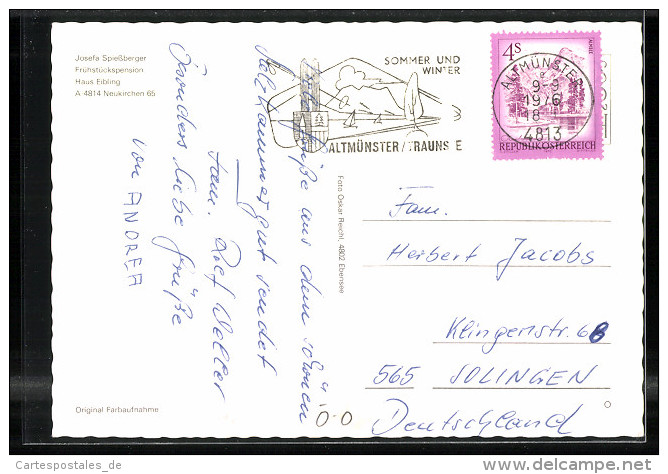 Josefa Spießberger
Frühstückspension
Haus Eibling
A 4814 Neukirchen 65
SOMMER UND
WINTER
ALTMÜNSTER/TRAUNSEE
4S
REPUBLIK ÖSTERREICH
ALTMÜNSTER
9-9
1976
18
4813
Viele Grüße aus dem schönen
Salzkammergut sendet
Fam. Rolf Weller
Besonders liebe Grüße
von ANDREA
Foto Oskar Reichl, 4802 Ebensee
Fam.
Herbert Jacobs
Klingenstr. 68
565 SOLINGEN
Deutschland
Original Farbaufnahme
Cartespostales_de
www.delcampe.net